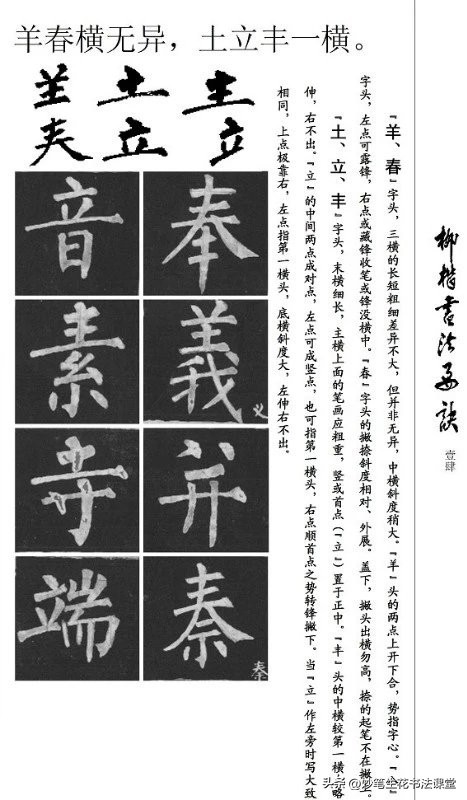 羊春横无异，土立丰一横。
柳楷书法要诀
壹肆
『羊、春』字头，三横的长短粗细差异不大，但并非无异，中横斜度稍大。『羊』头的两点上开下合，势指字心。
字头，左点可露锋，右点或藏锋收笔或锋没横中。『春』字头的撇捺斜度相对、外展。盖下，撇头出横勿高，捺的起笔不在撇上。
『土、立、丰』字头，末横细长，主横上面的笔画应粗重，竖或首点（『立』）置于正中。『丰』头的中横较第一横略
伸，右不出。『立』的中间两点成对点，左点可成竖点，也可指第一横头，右点顺首点之势转锋撇下。当『立』作左旁时写大致
相同，上点极靠右，左点指第一横头，底横斜度大，左伸右不出。
土
立 立
音 奉
素 義 义
寺 并
端 秦 秦
头条 @妙笔生花书法课堂